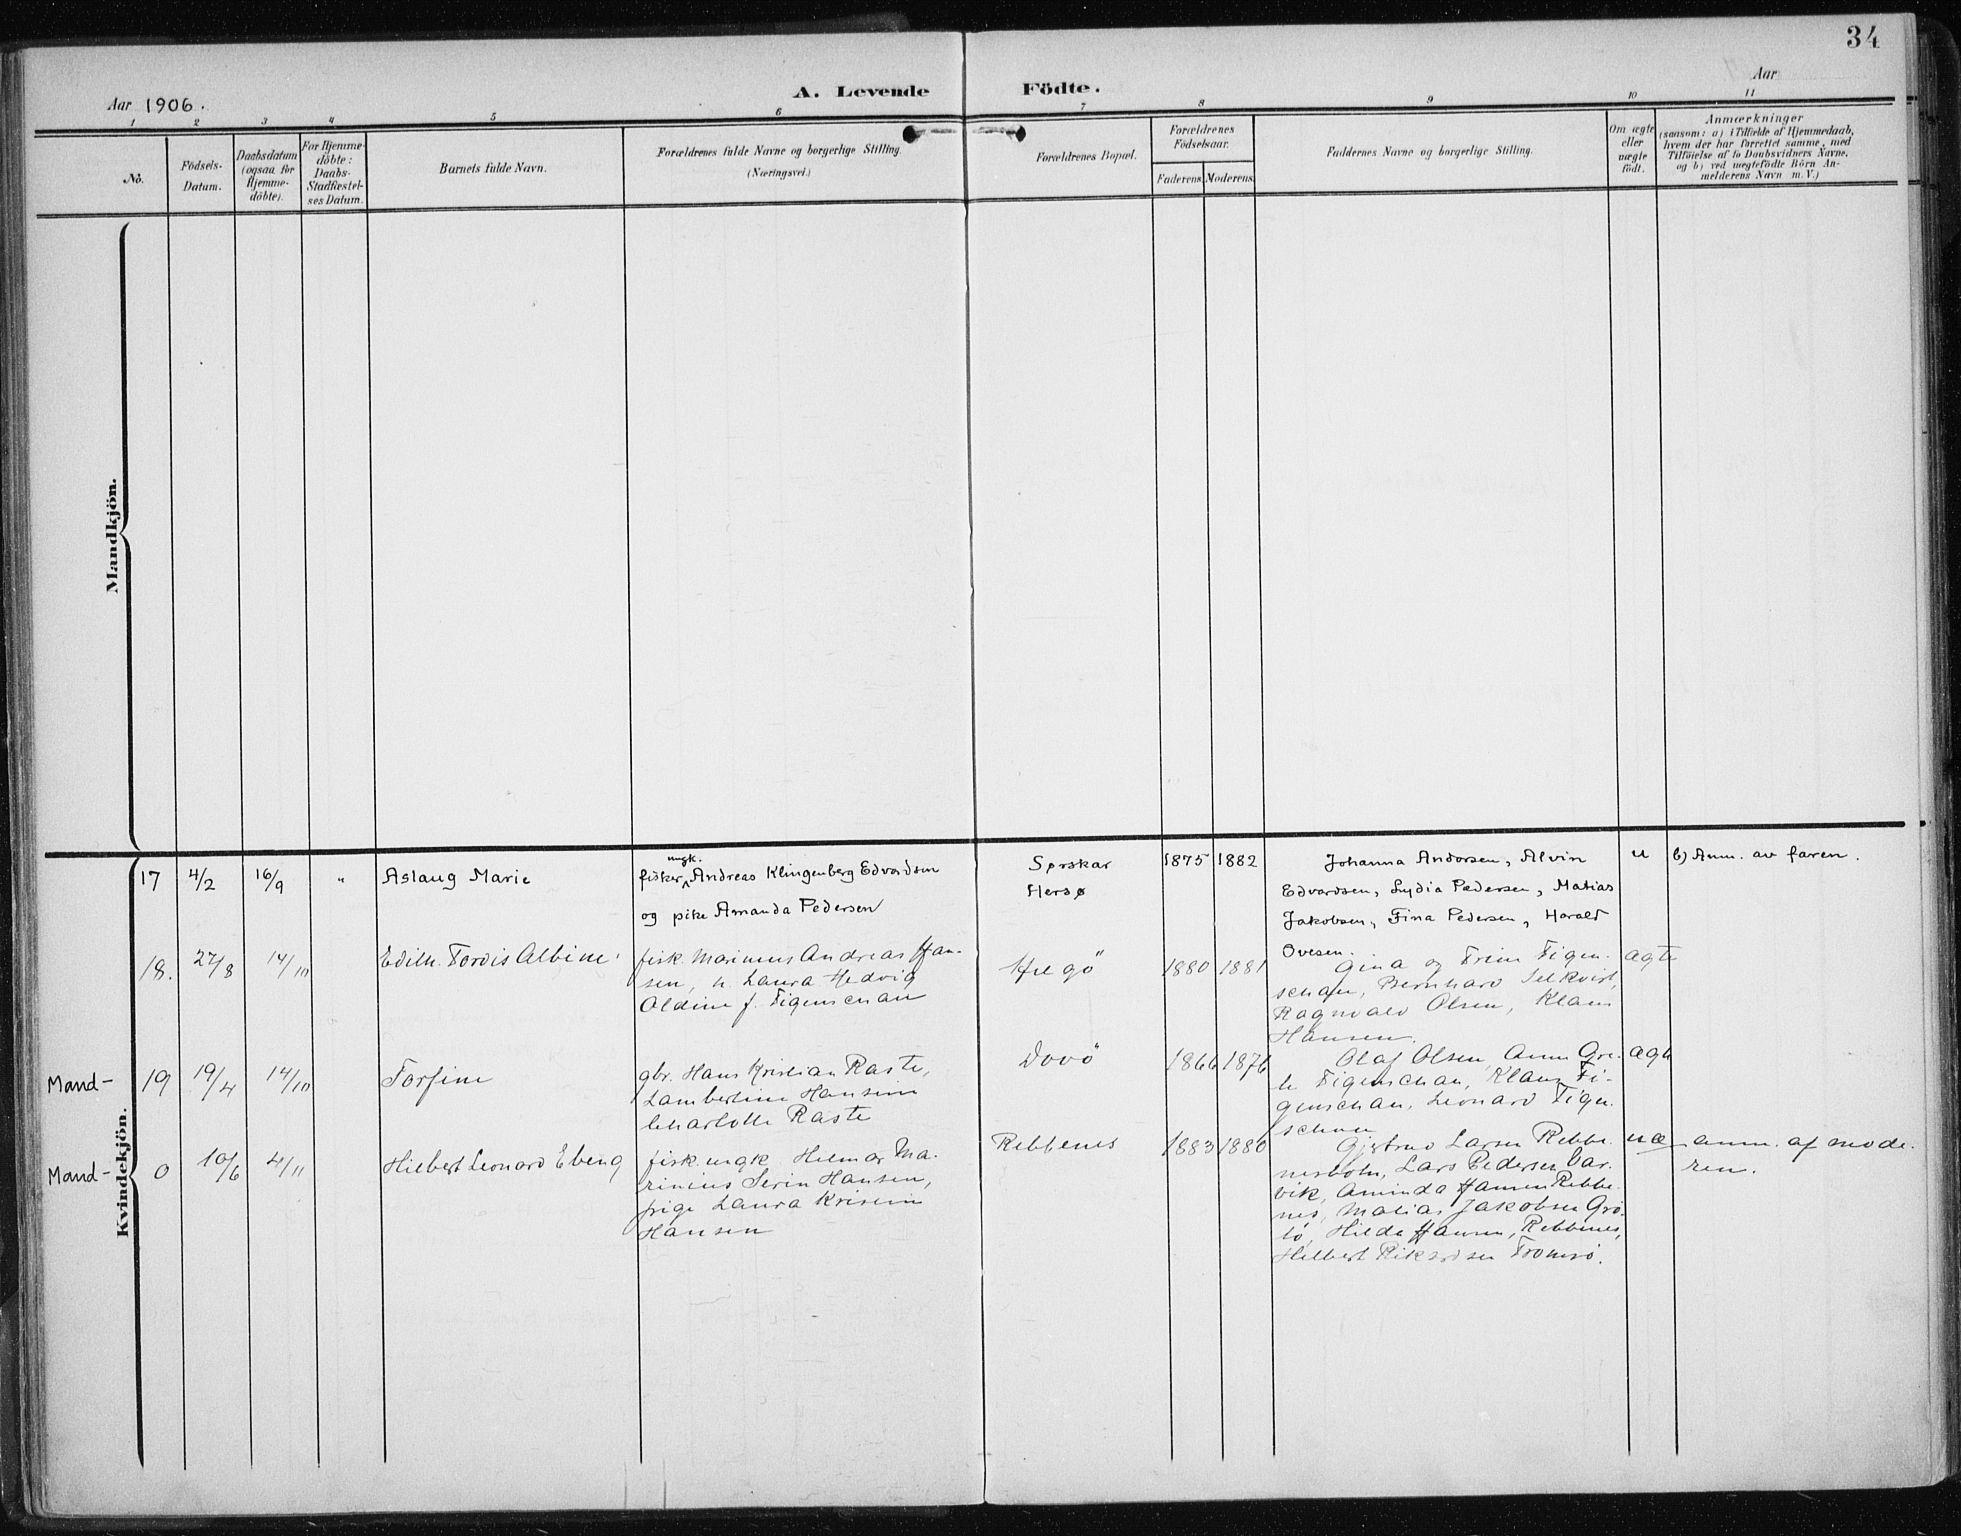 34
Aar 1906.
A. Levende Födte.
Aar
1 2 3 4 5 6 7 8 9 10 11
No.
Födsels-
Datum.
Daabsdatum
(ogsaa for
Hjemme-
döbte).
For Hjemme-
döbte:
Daabs-
Stadfæstel-
ses Datum.
Barnets fulde Navn.
Forældrenes fulde Navne og borgerlige Stilling.
(Næringsvei.)
Forældrenes Bopæl.
Forældrenes
Födselsaar.
Faderens. Moderens.
Faddernes Navne og borgerlige Stilling.
Om ægte
eller
uægte
födt.
Anmærkninger
(saasom: a) i Tilfælde af Hjemmedaab,
hvem der har forrettet samme, med
Tilföielse af to Daabsvidners Navne,
og b) ved uægtefödte Börn An-
melderens Navn m. V.)
Mandkjön.
Kvindekjön.
17 4/2 16/9 " Aslaug Marie
ungk.
fisker Andreas Klingenberg Edvardsen
og pike Amanda Pedersen
Sørskar
Hersø
1875 1882
Johanna Andorsen, Alvin
Edvardsen, Lydia Pedersen, Matias
Jakobsen, Fina Pedersen, Harald
Ovesen.
u b) Anm. av faren.
18. 27/8 14/10 Edith Tordis Albine
fisk. Marinius Andreas Han-
sen, h. Laura Hedvig
Oldine f. Figenschau
Helgö
1880 1881
Gina og Figen-
schau, Bernhard
Ragnvald Olsen, Klaus
Hansen.
ægte
Mand- 19 19/4 14/10 Torfine
gbr. Hans Kristian Raste,
Lambertine Hansine
Charlotte Raste
1866 1876
Olaf Olsen, Anne Gre-
te Figenschau, Klaus Fi-
genschau, Leonard Figen-
schau
ægte
Mand- 0 10/6 4/11 Hilbert Leonard Ebeng
fisk. ungk. Helmer Ma-
rinius Serin Hansen,
pige Laura Kristine
Hansen
Rebbenes
1883 1880
Gjertrud Larsen Rebbe-
nesbotn, Lars Pedersen Car-
vik, Aminda Hansen Rebbe-
nes, Matias Jakobsen Grö-
tö, Hilda Hansen, Rebbenes,
Hilbert Rikardsen Tromsö.
uæ- anm. af mode-
ren.